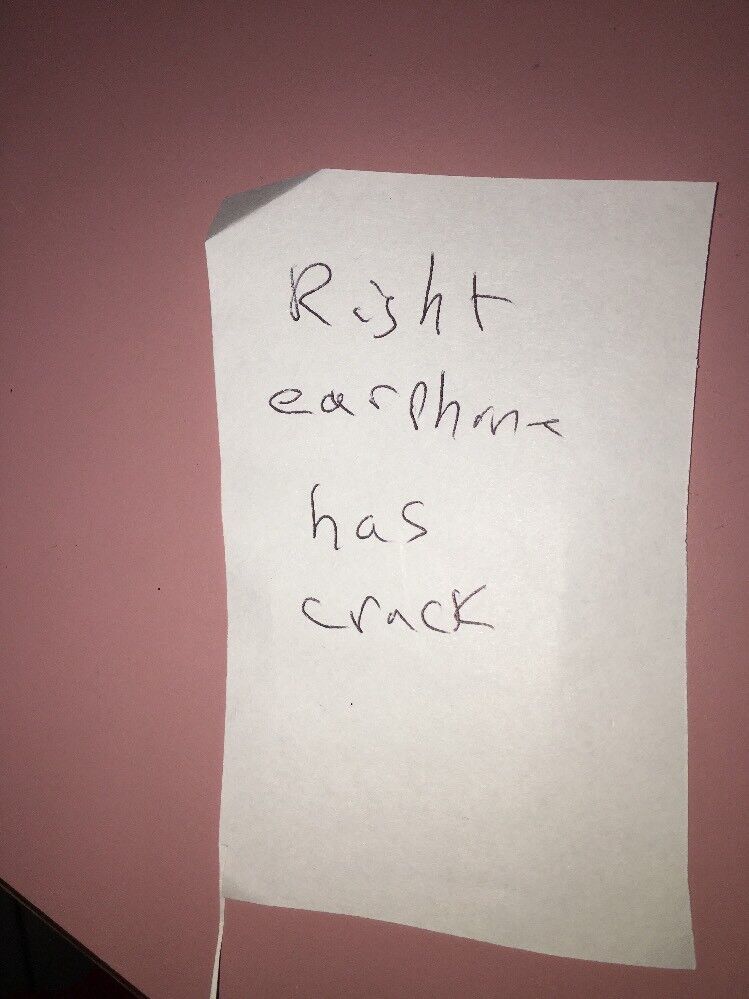 Right
earphone
has
crack